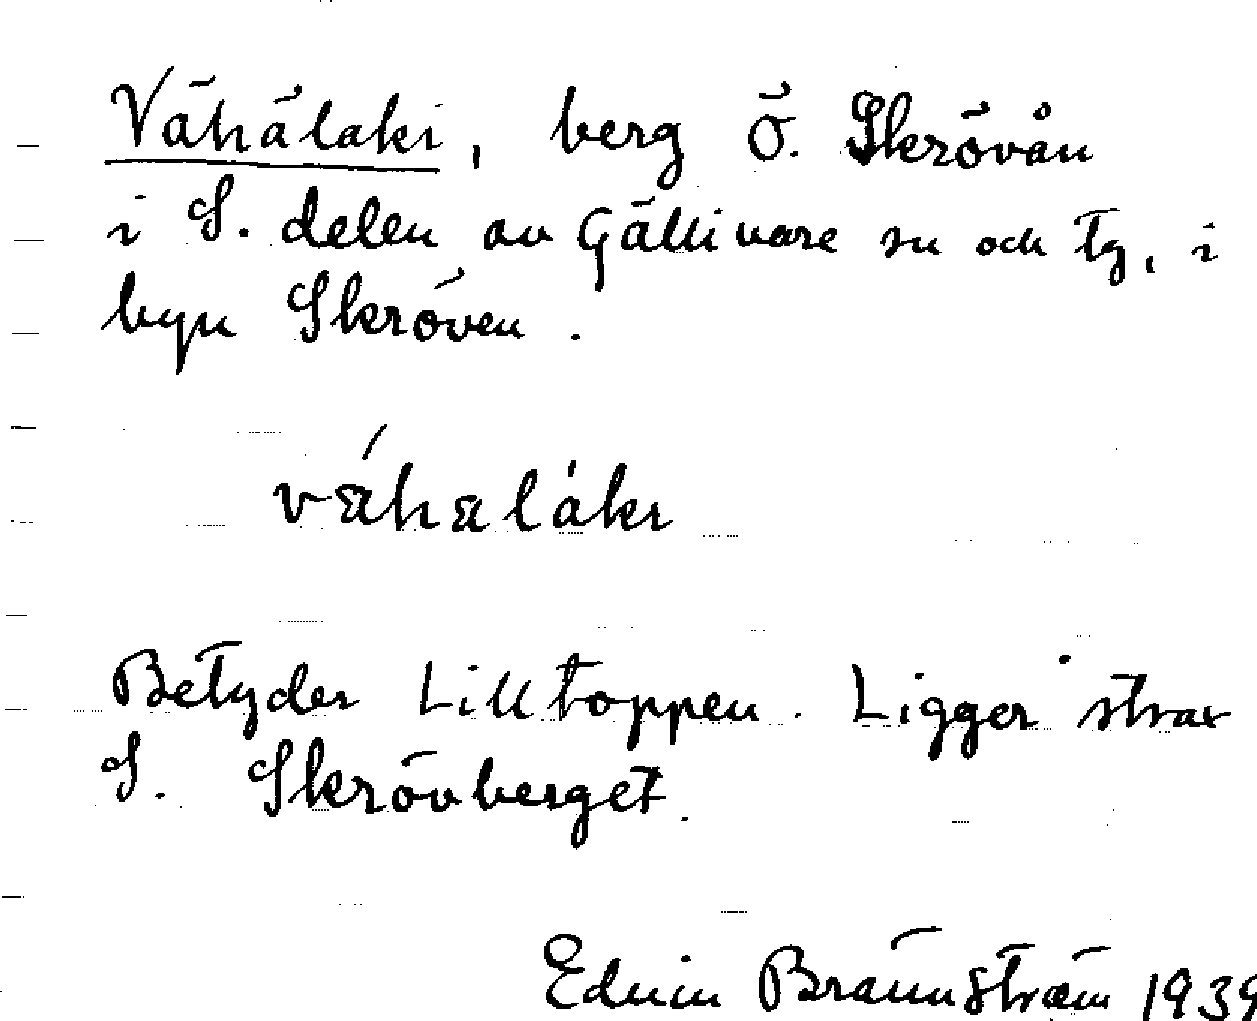 Vähälaki, berg Ö. Skrövån
i S. delen av Gällivare sn och tg, i
byn Skröven.
vähaláki
Betyder Lilltoppen. Ligger strax
S. Skrövberget.
Edvin Brännström 1939